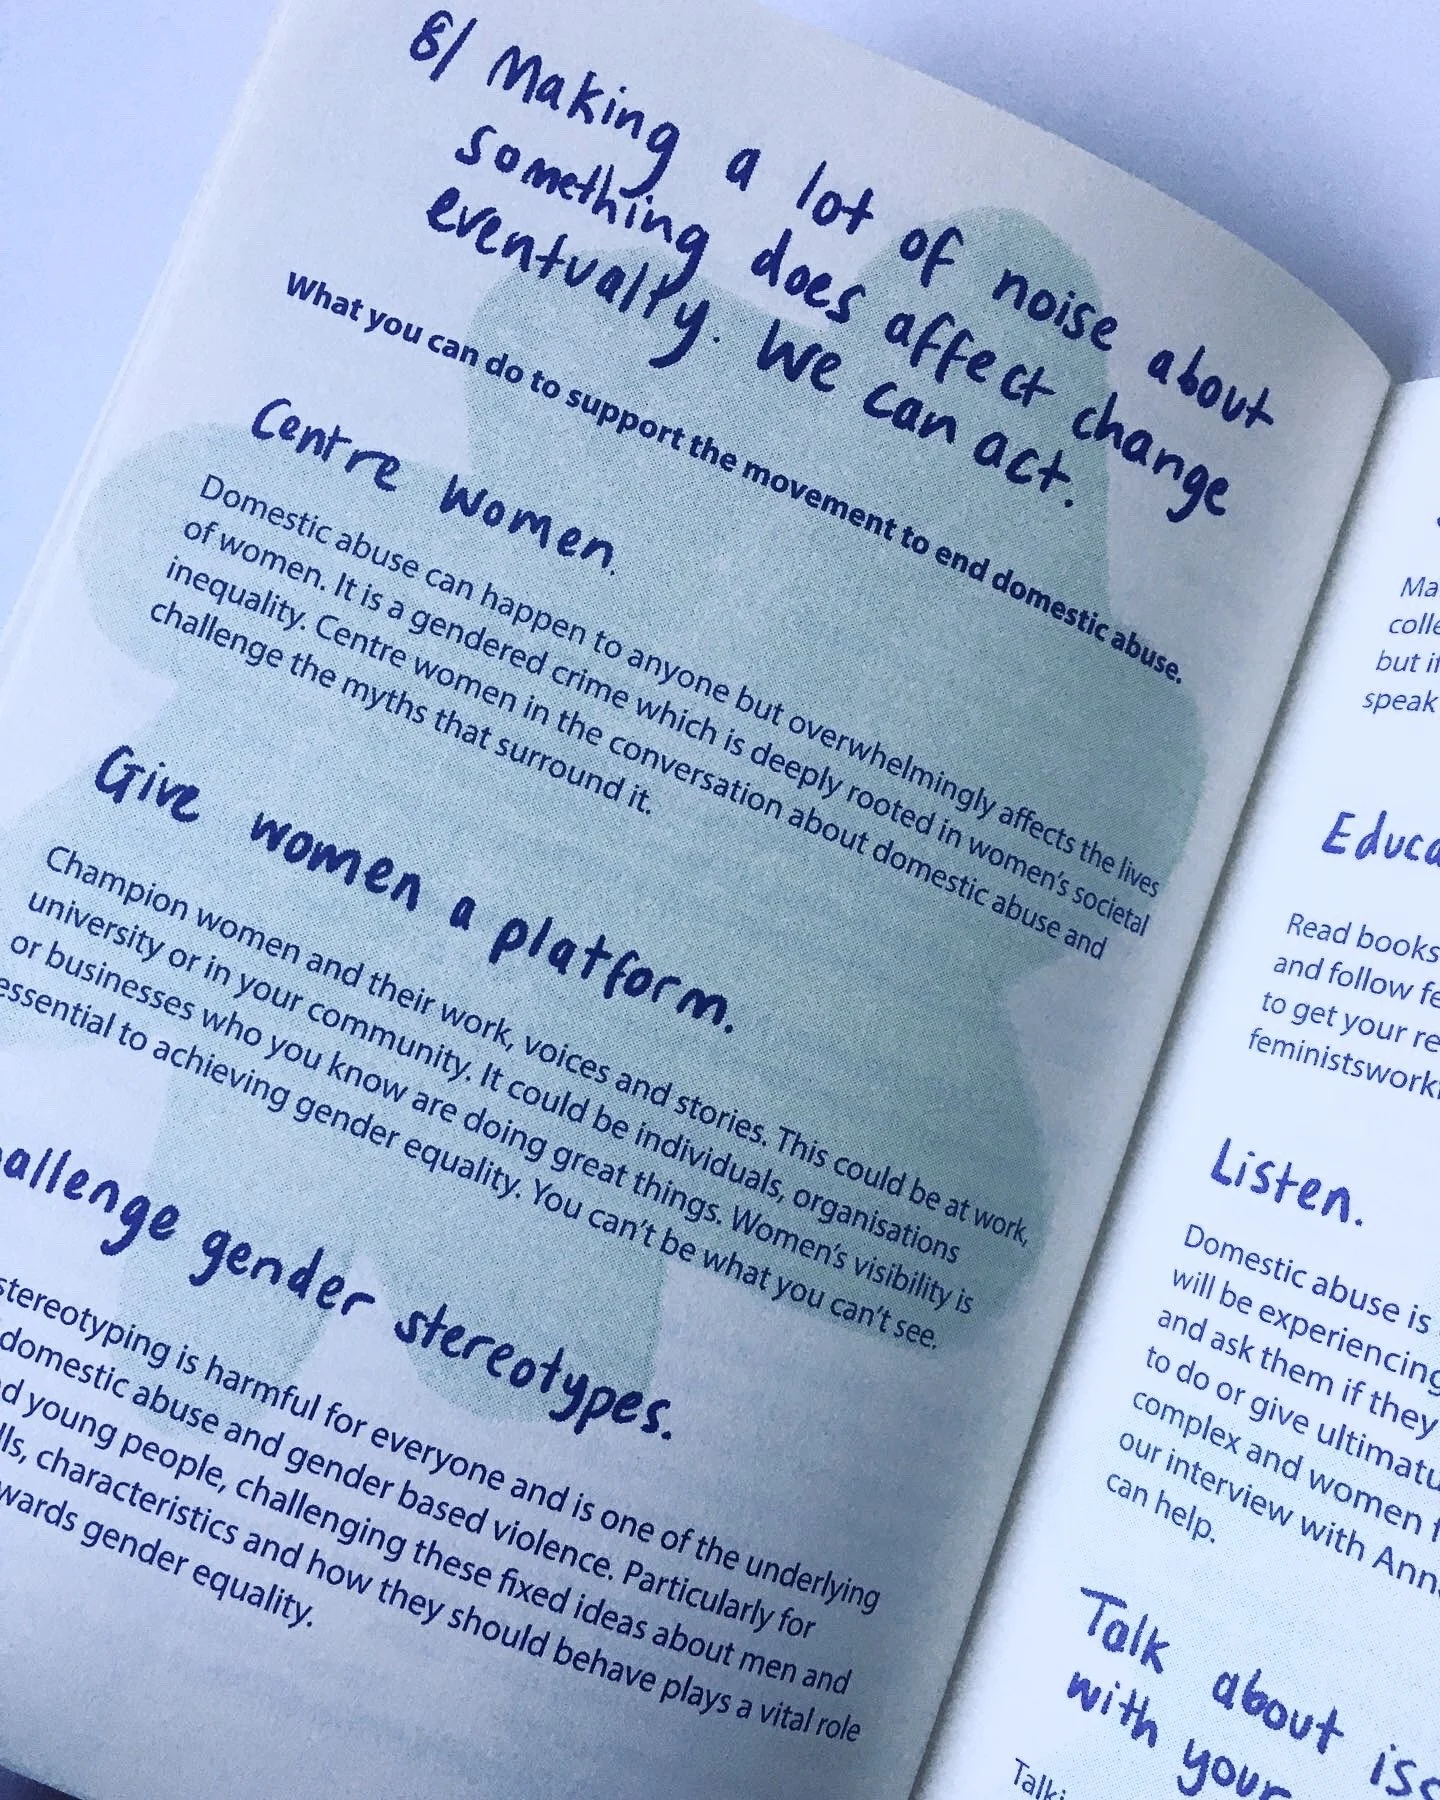 8/ Making a lot of noise about
something does affect change
eventually. We can act.
What you can do to support the movement to end domestic abuse.
Centre women.
Domestic abuse can happen to anyone but overwhelmingly affects the lives
of women. It is a gendered crime which is deeply rooted in women's societal
inequality. Centre women in the conversation about domestic abuse and
challenge the myths that surround it.
Give women a platform.
Champion women and their work, voices and stories. This could be at work,
university or in your community. It could be individuals, organisations
or businesses who you know are doing great things. Women's visibility is
essential to achieving gender equality. You can't be what you can't see.
allenge gender stereotypes.
stereotyping is harmful for everyone and is one of the underlying
domestic abuse and gender based violence. Particularly for
d young people, challenging these fixed ideas about men and
lls, characteristics and how they should behave plays a vital role
wards gender equality.
Ma
colle
but i
speak
Educa
Read books
and follow fe
to get your re
feministswork
Listen.
Domestic abuse is
will be experiencing
and ask them if they
to do or give ultimatu
complex and women f
our interview with Ann
can help.
Talk about iss
with your
Talki